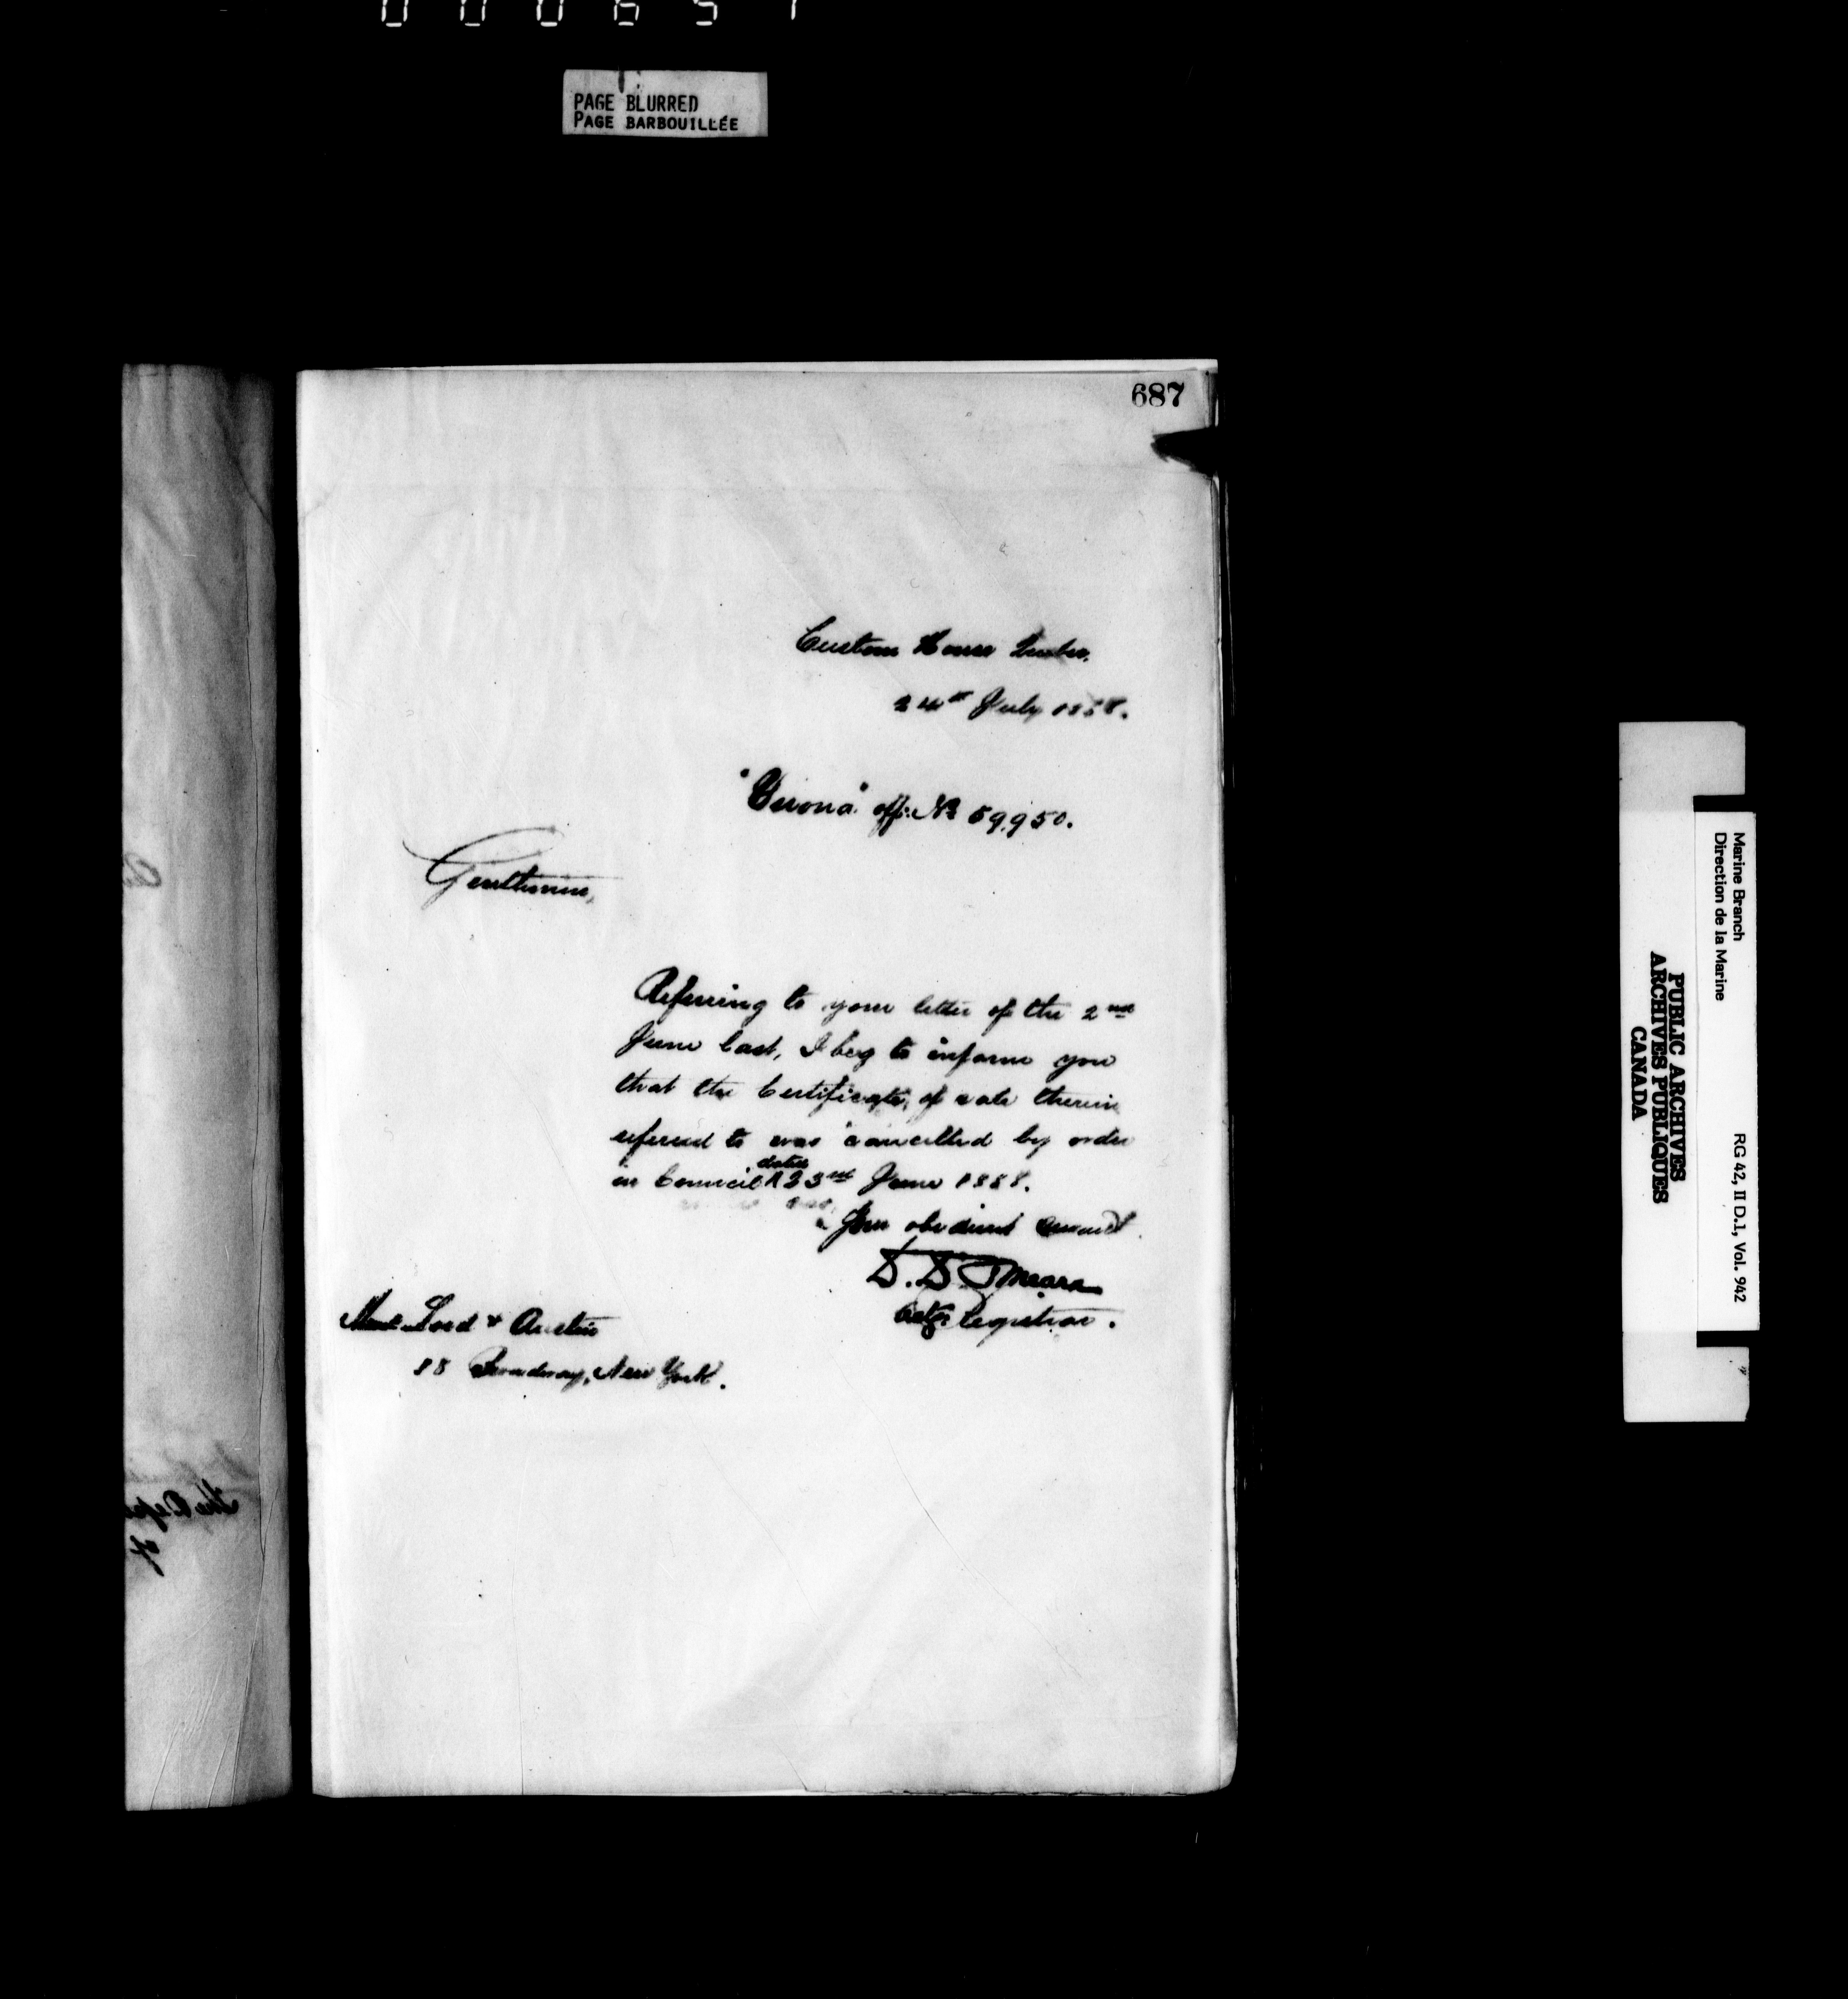 PAGE BLURRED
PAGE BARBOUILLÉE
687
Custom House Quebec,
24th July 1888.
"Girona" off: No 59,950.
Gentlemen,
Referring to your letter of the 2nd
June last, I beg to inform you
that the Certificate, of sale therein
referred to was cancelled by order
in Council dated 23rd June 1888.
Your obedient servant
D. D. O'Meara
Actg. Registrar.
Messrs Lord & Austin
18 Broadway, New York.
Marine Branch
Direction de la Marine
RG 42, II D.1, Vol. 942
PUBLIC ARCHIVES
ARCHIVES PUBLIQUES
CANADA